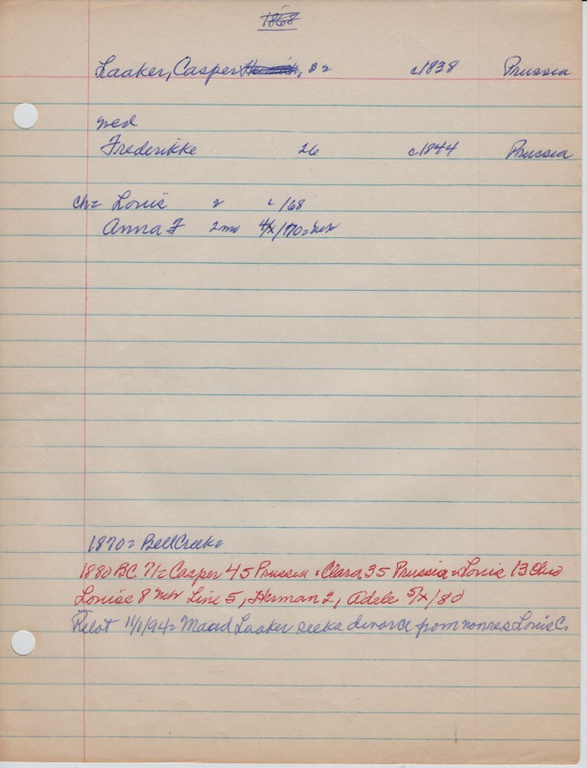 1868
Laaker, Casper 32 c1838 Prussia
wed
Frederikke 26 c1844 Prussia
ch= Louis 2 c/68
Anna F 2mo 4/x/70=Neb
1870= Bell Creek=
1880 BC 71= Casper 45 Prussia = Clara 35 Prussia = Louis 13 Ohio
Louise 8 Neb Line 5, Herman 2, Adele 5/x/80
Pilot 11/1/94= Maud Laaker seeks divorce from nonres Louis C.